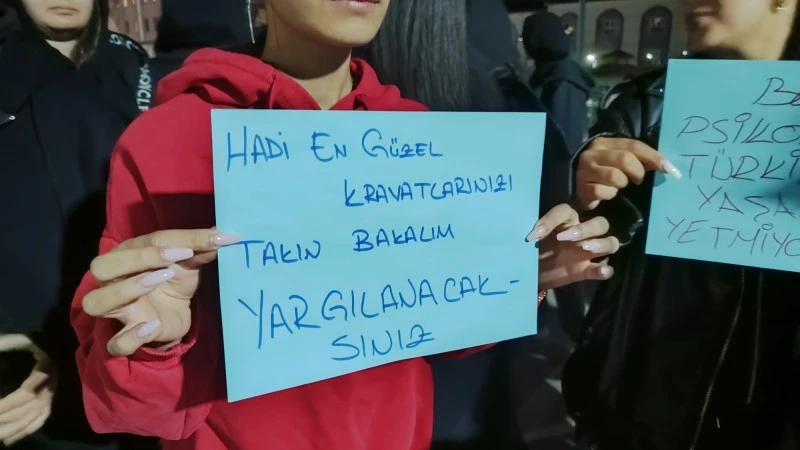 HADİ EN GÜZEL
KRAVATLARINIZI
TAKIN BAKALIM
YARGILANACAK-
SINIZ
PSİKO
TÜRKİ
YAŞA
YETMİYO